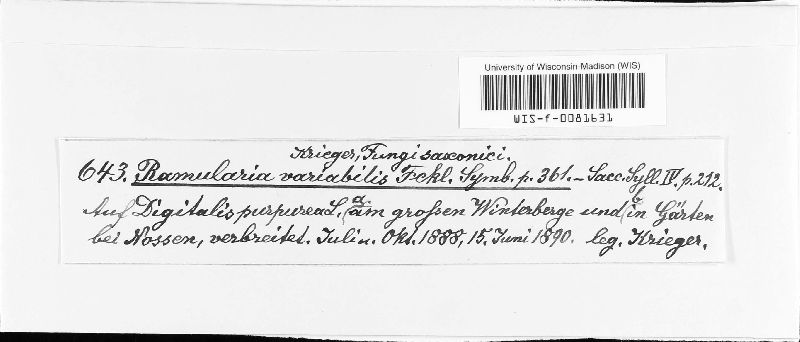 University of Wisconsin-Madison (WIS)
WIS-f-0081631
Krieger, Fungi saxonici.
643. Ramularia variabilis Fckl. Symb. p. 361. – Sacc. Syll. IV. p. 212.
Auf Digitalis purpurea L. (a am großen Winterberge und (b in Gärten
bei Nossen, verbreitet. Juli u. Okt. 1888, 15. Juni 1890. leg. Krieger.